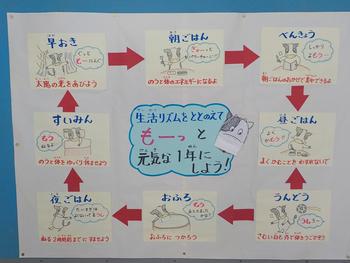 早おき
ぐっと
もーんぐ
太陽の光をあびよう
朝ごはん
のうと体のエネルギーになるよ
べんきょう
しっかり
よもうー
昼ごはん
よくかむことをわすれないで
うんどう
おふろ
おふろにつかろう
夜ごはん
ねる2時間前までにすませよう
すいみん
もう
ねるぞ
のうと体をゆっくり休ませよう
生活リズムをととのえて
もーっと
元気な1年に
しよう！